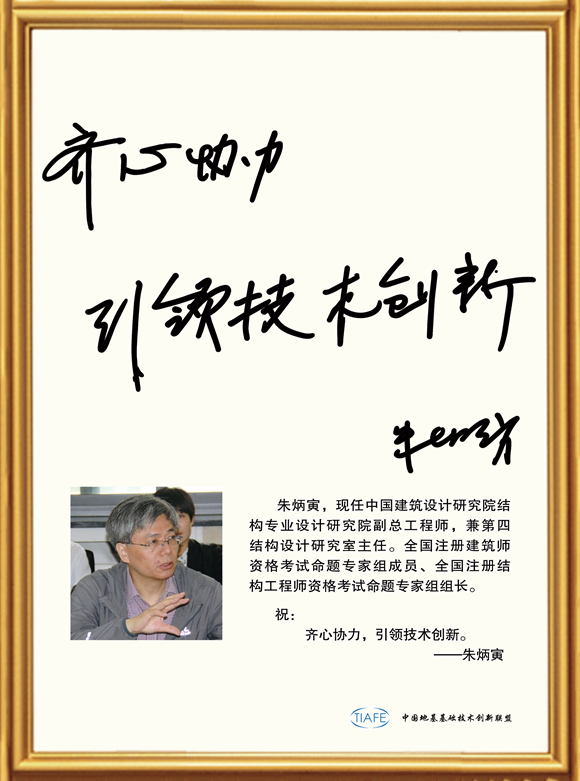 齐心协力
引领技术创新
朱炳寅
朱炳寅，现任中国建筑设计研究院结
构专业设计研究院副总工程师，兼第四
结构设计研究室主任。全国注册建筑师
资格考试命题专家组成员、全国注册结
构工程师资格考试命题专家组组长。
祝：
齐心协力，引领技术创新。
——朱炳寅
TIAFE 中国地基基础技术创新联盟